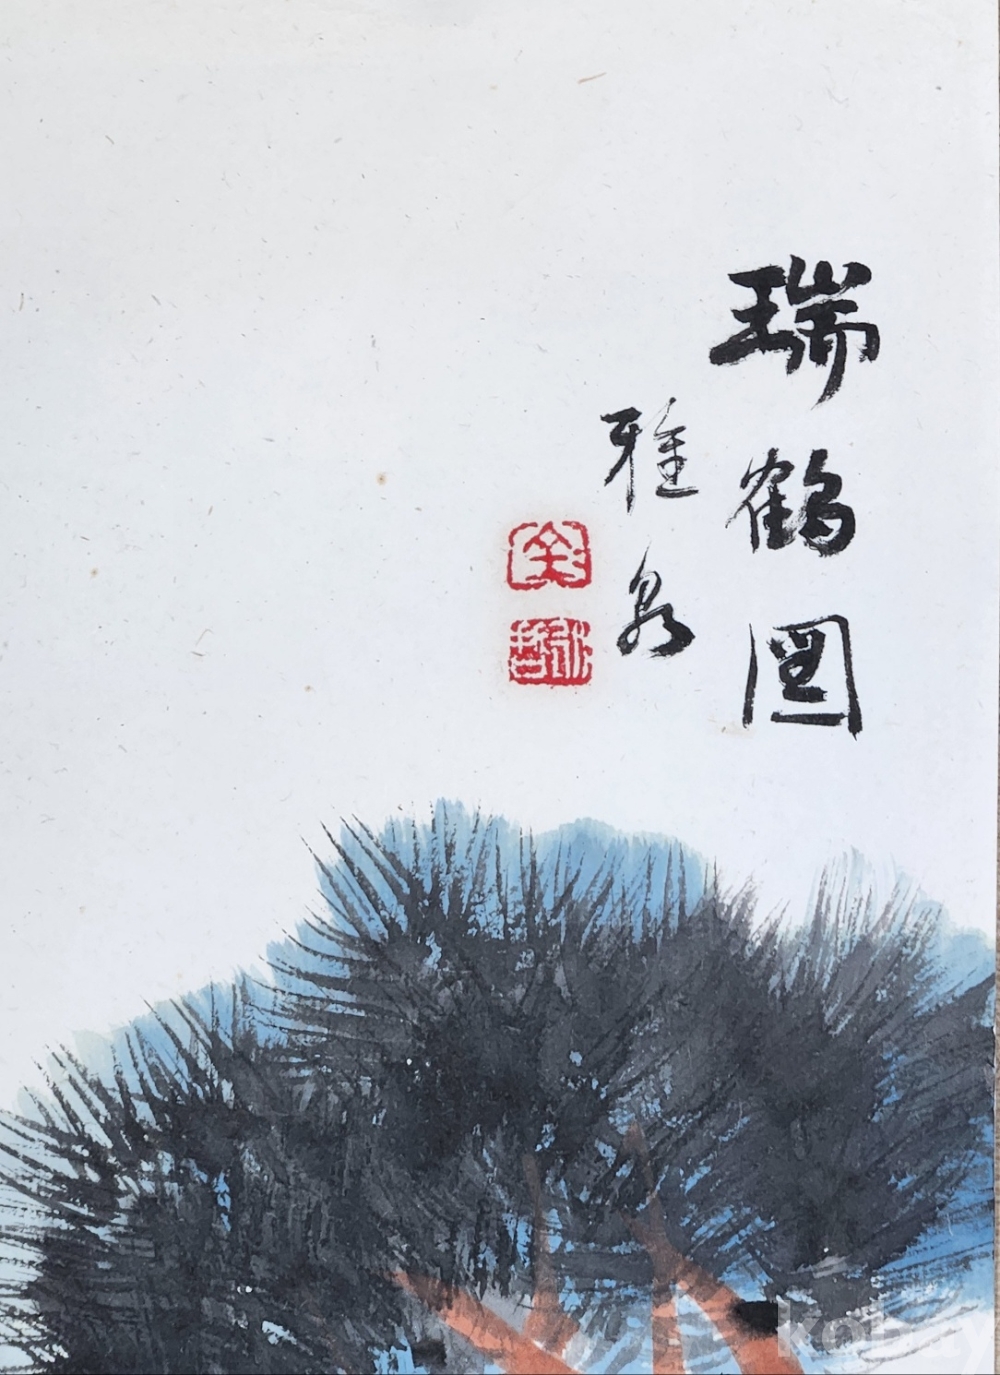 瑞鶴図
雅泉
kobay